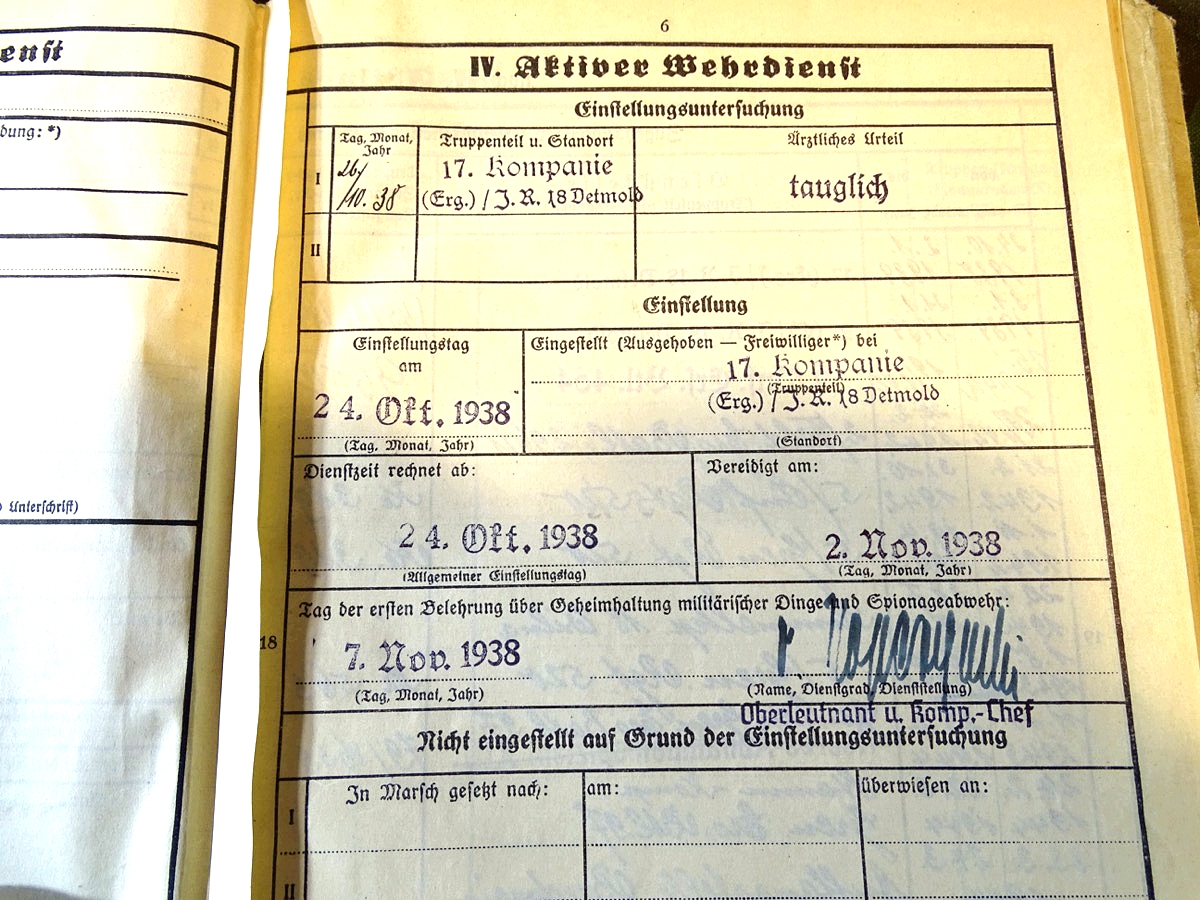 enst
dung: *)
Unterschrift)
6
IV. Aktiver Wehrdienst
Einstellungsuntersuchung
Tag, Monat, Jahr
Truppenteil u. Standort
Ärztliches Urteil
I
26/
/10. 38
17. Kompanie
(Erg.) / J. R. 18 Detmold
tauglich
II
Einstellung
Einstellungstag
am
24. Okt. 1938
(Tag, Monat, Jahr)
Eingestellt (Ausgehoben — Freiwilliger*) bei
17. Kompanie
(Truppenteil)
(Erg.) / J. R. 18 Detmold
(Standort)
Dienstzeit rechnet ab:
24. Okt. 1938
(Allgemeiner Einstellungstag)
Vereidigt am:
2. Nov. 1938
(Tag, Monat, Jahr)
Tag der ersten Belehrung über Geheimhaltung militärischer Dinge und Spionageabwehr:
18
7. Nov. 1938
(Tag, Monat, Jahr)
(Name, Dienstgrad, Dienststellung)
Oberleutnant u. Komp.-Chef
Nicht eingestellt auf Grund der Einstellungsuntersuchung
In Marsch gesetzt nach:
am:
überwiesen an:
I
II